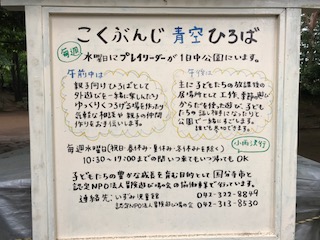 こくぶんじ 青空 ひろば
毎週
水曜日にプレイリーダーが1日中公園にいます。
午前中は
親子向けひろばとして
外遊びを一緒に楽しんだり
ゆっくりくつろげる場を作ったり
気軽な相談や親子の仲間
作りをお手伝いします。
午後は
主に子どもたちの放課後の
居場所として工作、季節の遊び
からだを使った遊び、子ども
たちの話し相手になったりと
公園で一緒にすごします。
誰でも参加できます。
毎週水曜日(祝日・春休み・夏休み・冬休みを除く)
小雨決行
10:30〜17:00までの間いつ来てもいつ帰ってもOK
子どもたちの豊かな成長を育む目的として国分寺市と
認定NPO法人冒険遊び場の会の協働事業で行っています。
連絡先:いずみ児童館 042-322-8849
認定NPO法人冒険遊び場の会 042-313-8530